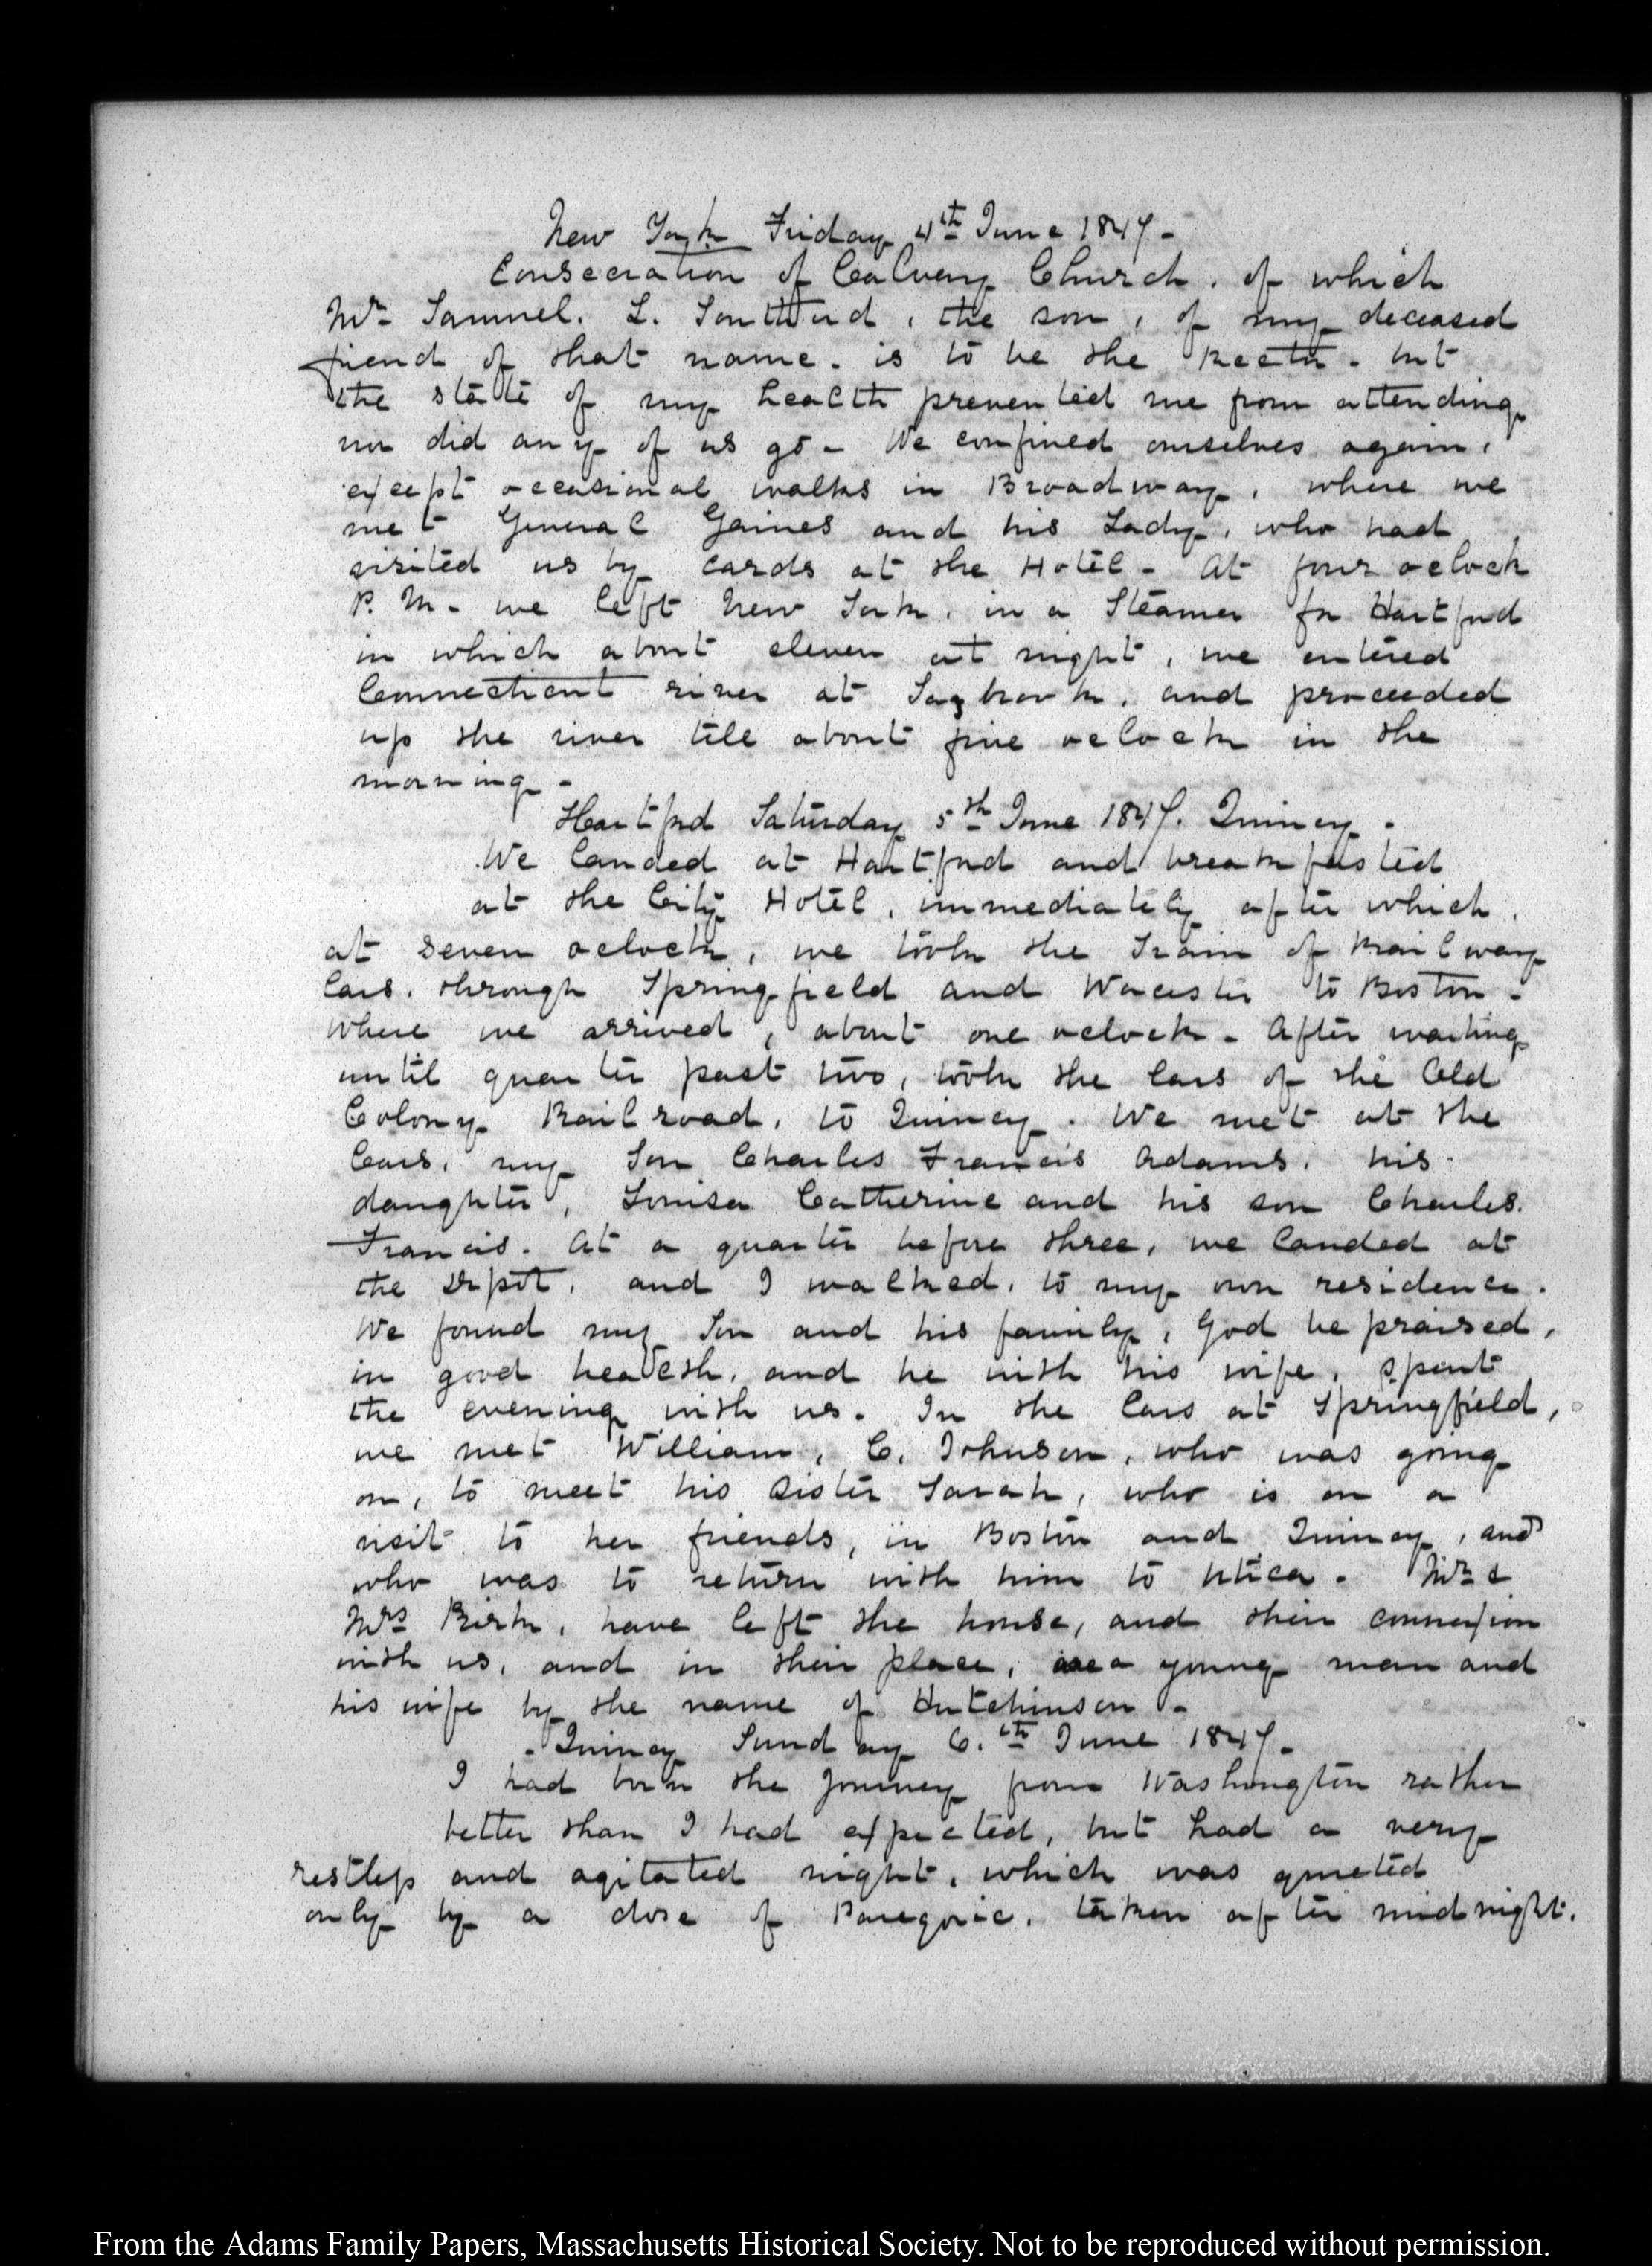 New York Friday 4th June 1847-
Consecration of Calvary Church, of which
Mr Samuel. L. Southard, the son, of my deceased
friend of that name. is to be the Rector. but
the state of my health prevented me from attending
nor did any of us go - We confined ourselves again,
except occasional walks in Broadway, where we
met General Gaines and his Lady, who had
visited us by cards at the Hotel - At four oclock
P. M. we left New York, in a Steamer for Hartford
in which about eleven at night, we entered
Connecticut river at Saybrook, and proceeded
up the river till about five oclock in the
morning -
Hartford Saturday 5th June 1847. Quincy.
We landed at Hartford and breakfasted
at the City Hotel, immediately after which,
at seven oclock, we took the Train of Railway
Cars, through Springfield and Worcester to Boston -
where we arrived, about one oclock - After waiting
until quarter past two, took the Cars of the Old
Colony Railroad, to Quincy. We met at the
Cars, my Son Charles Francis Adams, his
daughter, Louisa Catherine and his son Charles.
Francis. At a quarter before three, we landed at
the Depot, and I walked, to my own residence.
We found my Son and his family, God be praised,
in good health, and he with his wife, spent
the evening with us. In the Cars at Springfield,
we met William, C. Johnson, who was going
on, to meet his Sister Sarah, who is on a
visit to her friends, in Boston and Quincy, and
who was to return with him to Utica. Mr &
Mrs Kirk, have left the house, and their connexion
with us, and in their place, a young man and
his wife by the name of Hutchinson -
- Quincy Sunday 6.th June 1847-
I had born the journey from Washington rather
better than I had expected, but had a very
restless and agitated night, which was quieted
only by a dose of Paregoric, taken after midnight.
From the Adams Family Papers, Massachusetts Historical Society. Not to be reproduced without permission.